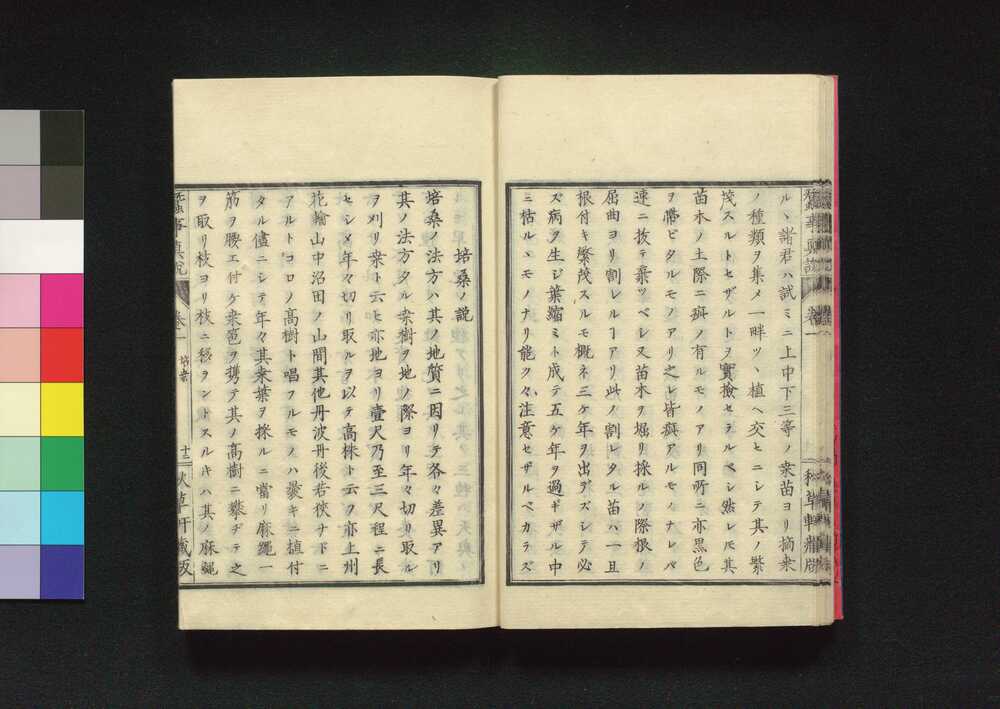 蚕事真説 巻一 秋草軒蔵版
ルヽ諸君ハ試ミニ上中下三等ノ桒苗ヨリ摘桒
ノ種類ヲ集メ一畔ツヽ植ヘ交セヒニシテ其ノ繁
茂スルトセザルトヲ實檢セラルベシ然レモ其
苗木ノ土際ニ斑ノ有ルモノアリ同所ニ亦黒色
ヲ帯ビタルモノアリ之レ皆癖アルモノナレバ
速ニ抜テ棄ツベシ又苗木ヲ堀リ採ルノ際根ノ
屈曲ヨリ割レルヿアリ此ノ割レタル苗ハ一旦
根付キ繁茂スルモ概子三ケ年ヲ出デズシテ必
ズ病ヲ生ジ葉縮ミト成テ五ケ年ヲ過ギザル中
ニ枯ルヽモノナリ能ク々注意セザルベカラズ
培桑ノ説
培桑ノ法方ハ其ノ地質ニ因リテ各々差異アリ
其ノ法方タル桒樹ヲ地ノ際ヨリ年々切リ取ル
ヲ刈リ桒ト云ヒ亦地ヨリ壹尺乃至三尺程ニ長
セシメ年々切リ取ルヲ以テ高株ト云フ亦上州
花輪山中沼田ノ山間其他丹波丹後若狹ナドニ
アルトコロノ高樹ト唱フルモノハ曩キニ植付
タル儘ニシテ年々其桒葉ヲ採ルニ當リ麻繩一
筋ヲ腰エ付ケ桒笣ヲ携テ其ノ高樹ニ攀ヂテ之
ヲ取リ枝ヨリ枝ニ移ヲントスルキハ其ノ麻繩
蚕事真説 巻一 培桒 十二 秋草軒蔵版